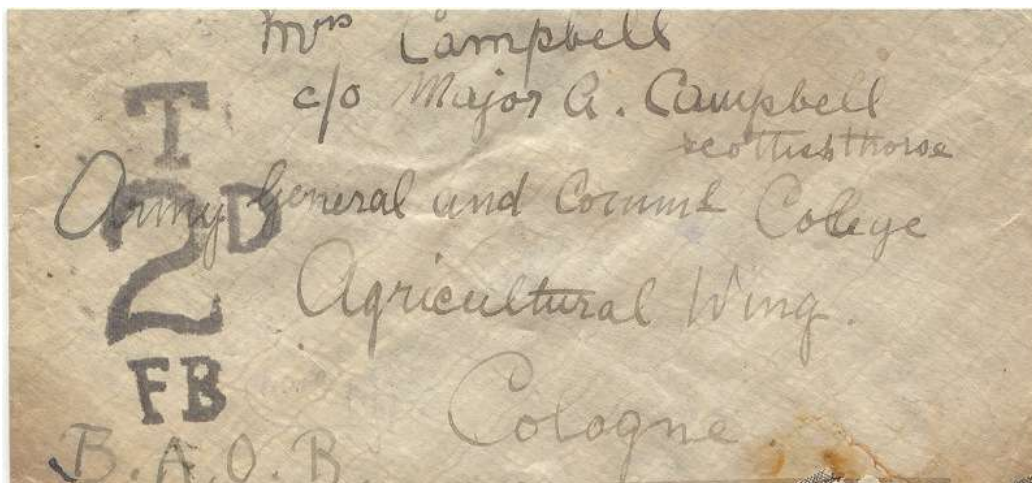 Mrs Campbell
c/o Major A. Campbell
Scottish Horse
Army General and Comml College
Agricultural Wing.
Cologne
B.A.O.R
T
2D
FB